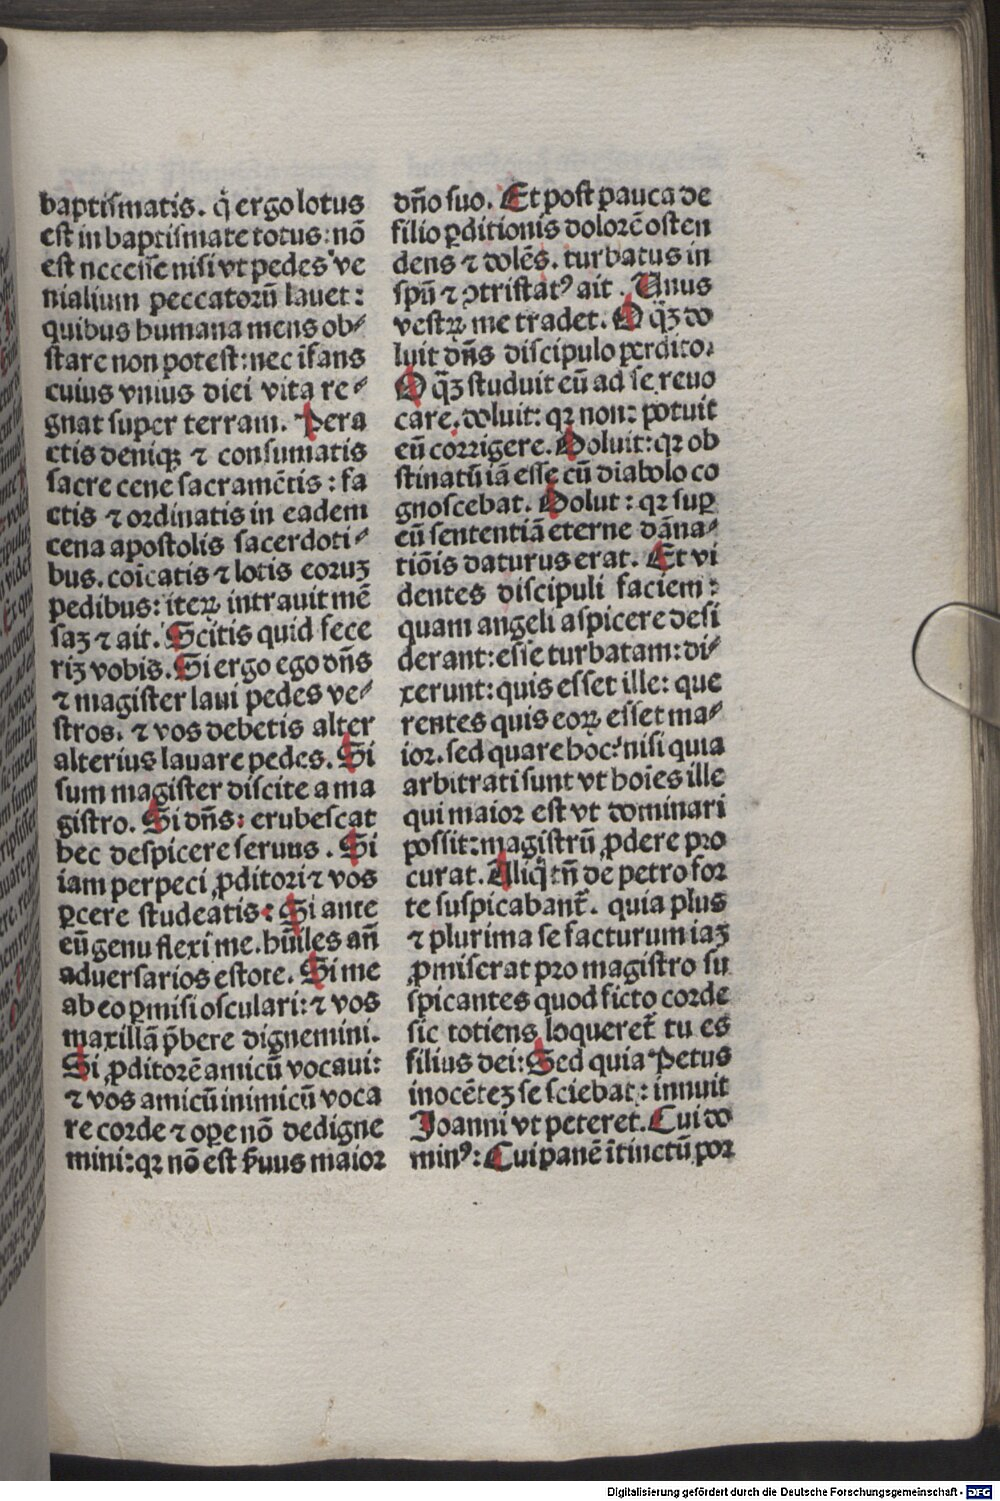 baptismatis. q̃ ergo lotus
est in baptismate totus: nõ
est necesse nisi vt pedes ve
nialium peccatorũ lauet:
quibus humana mens ob⸗
stare non potest: nec ĩfans
cuius vnius diei vita re⸗
gnat super terram. Pera
ctis deniqꝫ ⁊ consumatis
sacre cene sacramẽtis: fa
ctis ⁊ ordinatis in eadem
cena apostolis sacerdoti⸗
bus. coĩcatis ⁊ lotis eoruꝫ
pedibus: iterꝝ intrauit mẽ
saꝫ ⁊ ait. Scitis quid fece
riꝫ vobis. Si ergo ego dñs
⁊ magister laui pedes ve⸗
stros. ⁊ vos debetis alter
alterius lauare pedes. Si
sum magister discite a ma
gistro. Si dñs: erubescat
hec despicere seruus. Si
iam perpeci ꝓditori ⁊ vos
ꝑcere studeatis: Si ante
eũ genu flexi me. hũiles añ
aduersarios estote. Si me
ab eo ꝑmisi osculari: ⁊ vos
maxillã p̃bere dignemini.
Si ꝓditorẽ amicũ vocaui:
⁊ vos amicũ inimicũ voca
re corde ⁊ oꝑe nõ dedigne
mini: qꝛ nõ est s̃uus maior
dño suo. Et post pauca de
filio ꝑditionis dolorẽ osten
dens ⁊ dolẽs. turbatus in
spũ ⁊ ꝯtristatꝰ ait. Unus
vestrꝝ me tradet. O q̃ꝫ do
luit dñs discipulo perdito.
O q̃ꝫ studuit eũ ad se reuo
care. doluit: qꝛ non: potuit
eũ corrigere. Doluit: qꝛ ob
stinatũ iã esse cũ diabolo co
gnoscebat. Dolut: qꝛ suꝑ
eũ sententiã eterne dãna⸗
tiõis daturus erat. Et vi
dentes discipuli faciem:
quam angeli aspicere desi
derant: esse turbatam: di⸗
xerunt: quis esset ille: que
rentes quis eorꝝ esset ma⸗
ior. sed quare hoc: nisi quia
arbitrati sunt vt hoĩes ille
qui maior est vt dominari
possit: magistrũ ꝓdere pro
curat. Aliq̃ tñ de petro for
te suspicabant̃. quia plus
⁊ plurima se facturum iaꝫ
ꝓmiserat pro magistro su
spicantes quod ficto corde
sic totiens loqueret̃ tu es
filius dei: Sed quia Petus
inocẽteꝫ se sciebat: innuit
Joanni vt peteret. Cui do
minꝰ: Cui panẽ ĩtinctũ por
Digitalisierung gefördert durch die Deutsche Forschungsgemeinschaft - DFG